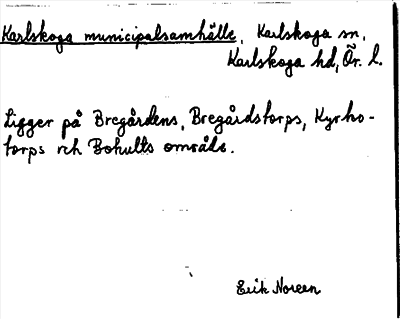 Karlskoga municipalsamhälle, Karlskoga sn,
Karlskoga hd, Ör. l.
Ligger på Bregårdens, Bregårdstorps, Kyrko-
torps och Bohults område.
Erik Noreen